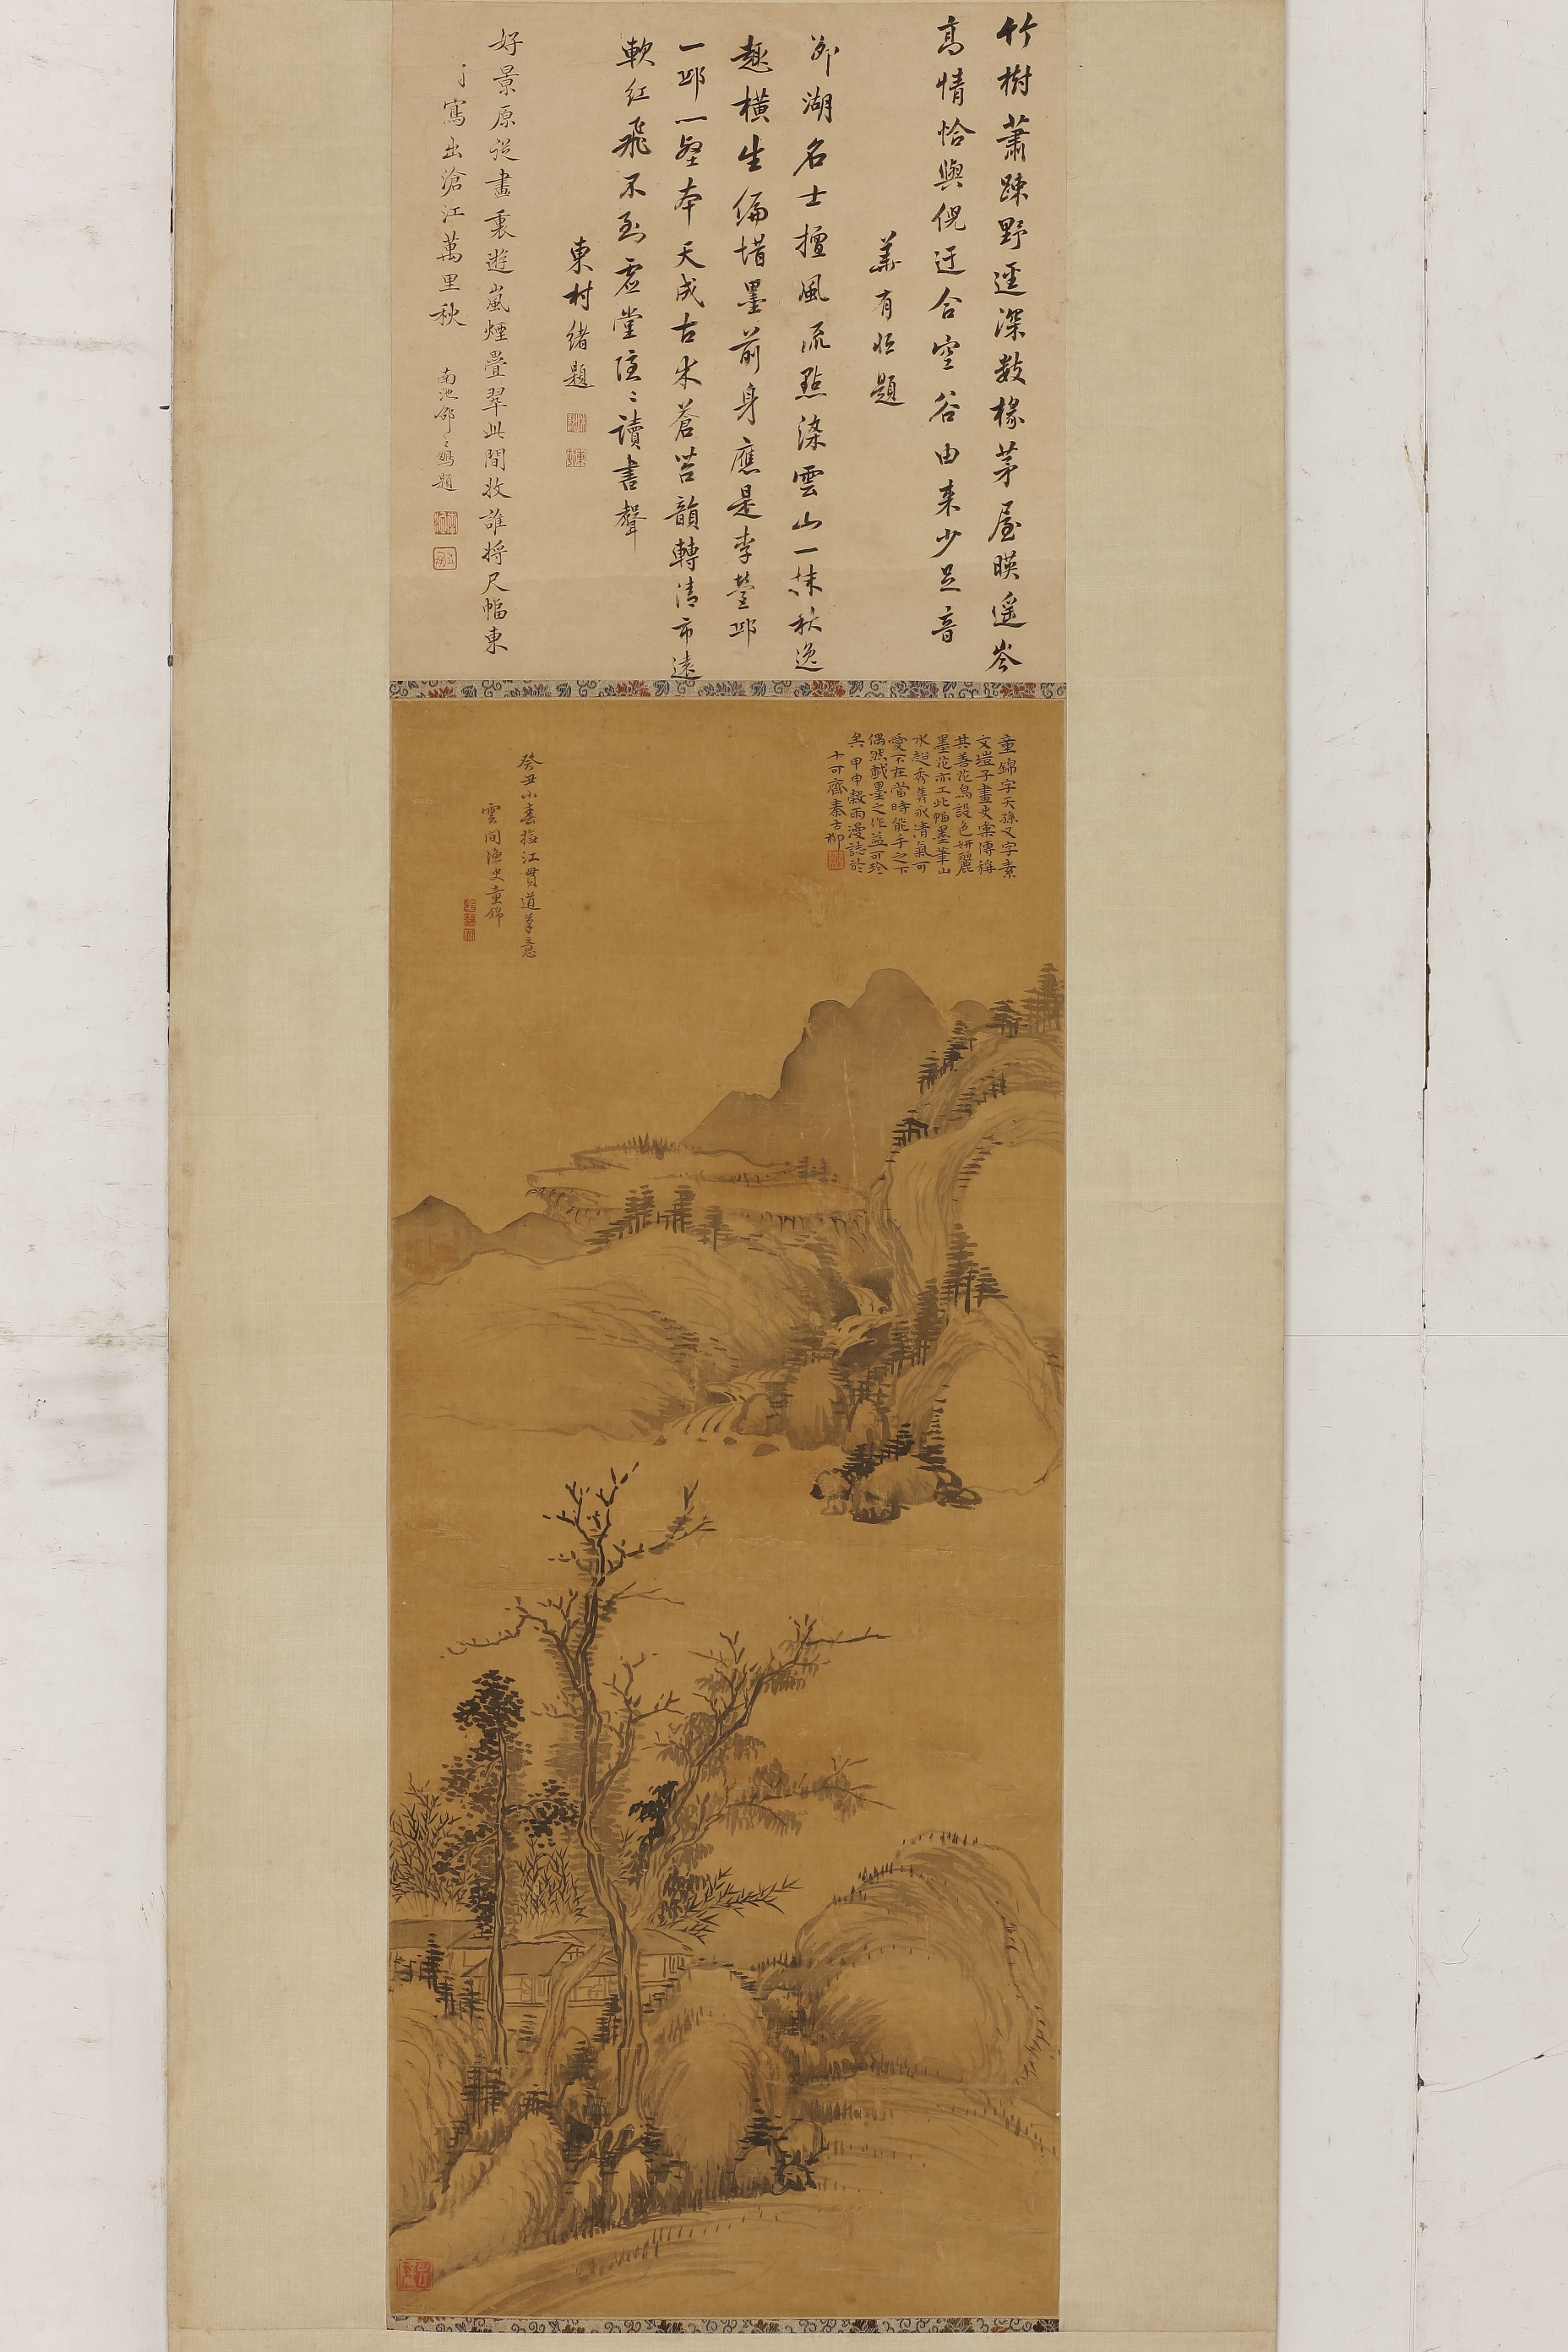 竹樹蕭踈野逕深數椽茅屋暎遥岑
高情恰與倪迂合空谷由來少足音
姜有恒題
泖湖名士擅風流點染雲山一抹秋逸
趣橫生偏惜墨前身應是李營邱
一邱一壑本天成古木蒼苔韻轉清市遠
軟紅飛不到虛堂隱〻讀書聲
東村緒題
好景原從畫裏遊嵐煙疊翠此間收誰將尺幅東
寫出滄江萬里秋
南池鄒鶚題
童錦字天孫又字素
文愷子畫史彙傳稱
其善花鳥設色妍麗
墨花亦工此幅墨筆山
水超秀雋永清氣可
愛不在當時能手之下
偶然戲墨之作益可珍
矣甲申穀雨漫誌於
十可齋秦古柳
癸丑小春撫江貫道筆意
雲間漁史童錦